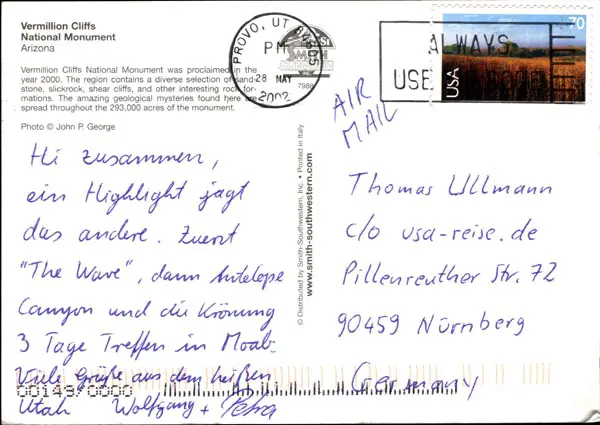 Vermillion Cliffs
National Monument
Arizona
Vermillion Cliffs National Monument was proclaimed in the
year 2000. The region contains a diverse selection of sand
stone, slickrock, shear cliffs, and other interesting rock for-
mations. The amazing geological mysteries found here are
spread throughout the 293,000 acres of the monument.
Photo © John P. George
PROVO, UT 84605
PM
28 MAY
2002
SMITH
7988
ALWAYS
USE
USA
70
AIR
MAIL
Hi zusammen,
ein Highlight jagt
das andere. Zuerst
"The Wave", dann Antelope
Canyon und die Krönung
3 Tage Treffen in Moab.
Viele Grüße aus dem heißen
Utah Wolfgang + Petra
00149/0000
© Distributed by Smith-Southwestern, Inc. • Printed in Italy
www.smith-southwestern.com
Thomas Ullmann
c/o usa-reise.de
Pillenreuther Str. 72
90459 Nürnberg
Germany